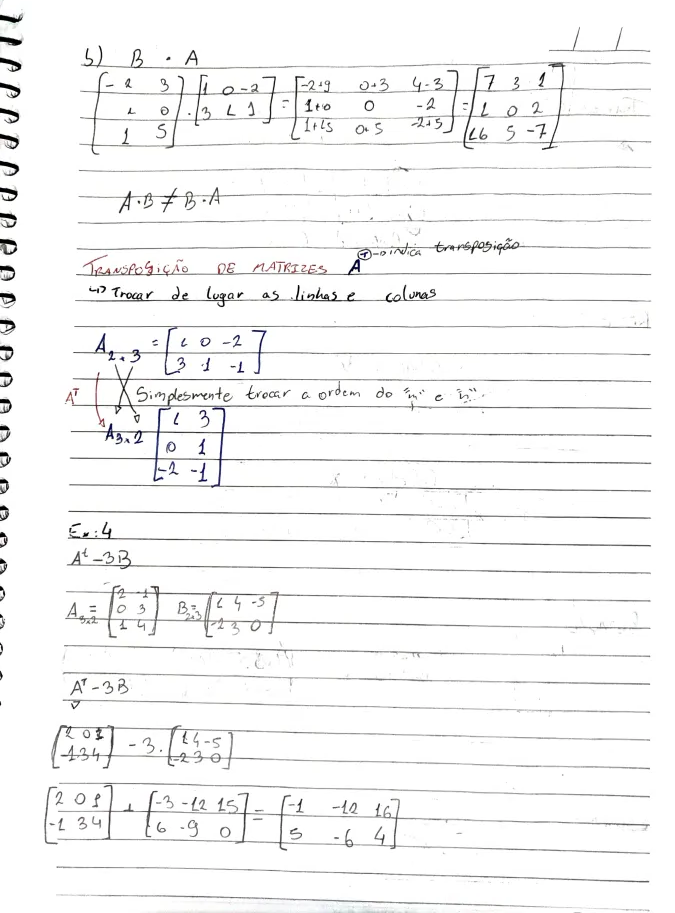 b) B · A
[-2 3; 1 0; 1 5] · [1 0 -2; 3 1 1] = [-2+9 0+3 4-3; 1+0 0 -2; 1+15 0+5 -2+5] = [7 3 1; 1 0 2; 16 5 -7]
A·B ≠ B·A
TRANSPOSIÇÃO DE MATRIZES A^T → indica transposição
↳ Trocar de lugar as linhas e colunas
A 2×3 = [1 0 -2; 3 1 -1]
A^T Simplesmente trocar a ordem do "m" e "n".
A 3×2 [1 3; 0 1; -2 -1]
Ex: 4
A^t - 3B
A 3×2 = [2 -1; 0 3; 1 4] B 2×3 = [1 4 -5; -2 3 0]
A^T - 3B
[2 0 1; -1 3 4] - 3 · [1 4 -5; -2 3 0]
[2 0 1; -1 3 4] + [-3 -12 15; 6 -9 0] = [-1 -12 16; 5 -6 4]